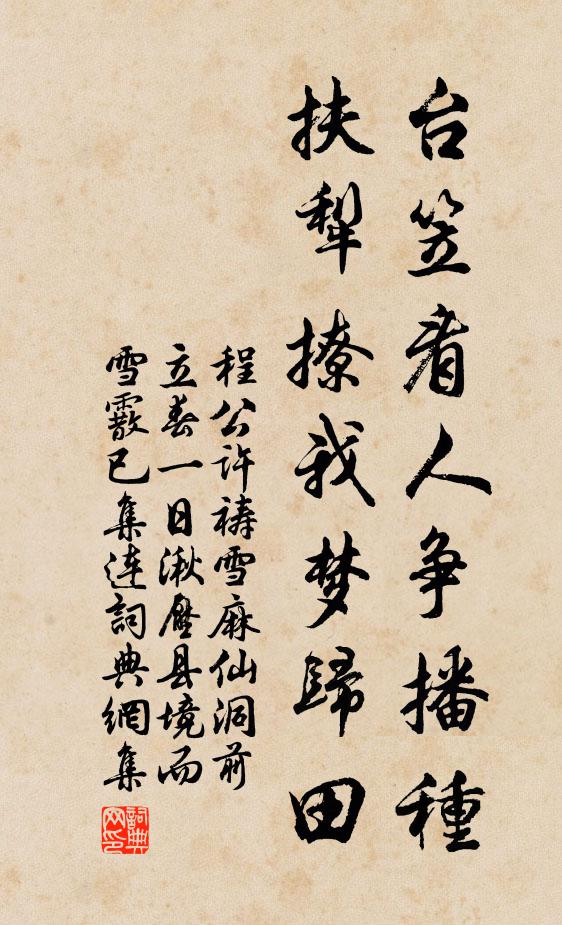 台笠看人争播種
扶犁撩我梦歸田
程公许祷雪麻仙洞前
立春一日湫县境而
雪霰已集连詞典網集
詞典网印